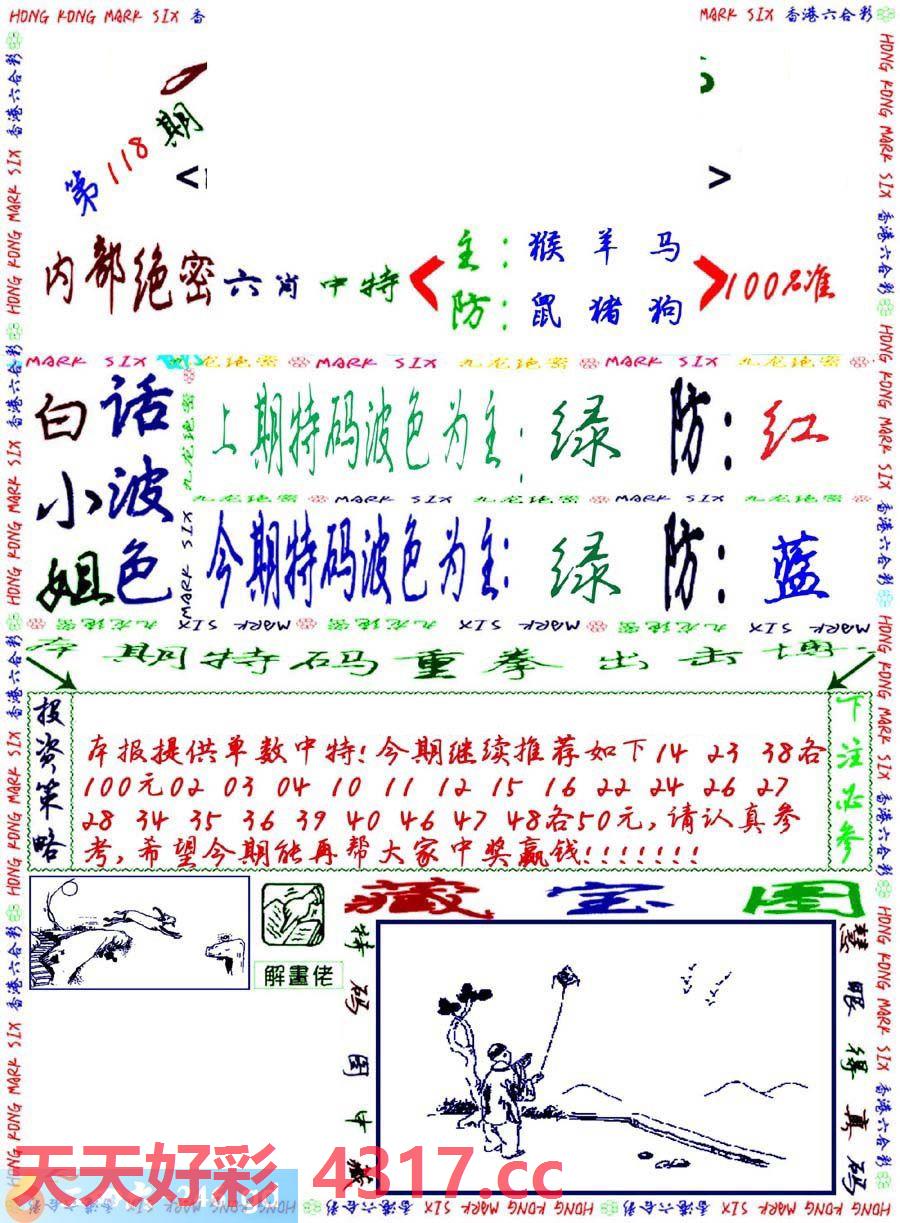 HONG KONG MARK SIX 香
MARK SIX 香港六合彩
第118期
内部绝密六肖中特
主：猴羊马
防：鼠猪狗
100%准
MARK SIX 九龙绝密 MARK SIX 九龙绝密 MARK SIX 九龙绝密
白小姐
话波色
上期特码波色为主：绿 防：红
九龙绝密 MARK SIX 九龙绝密 MARK SIX 九龙绝密
今期特码波色为主：绿 防：蓝
本期特码重拳出击博
投资策略
本报提供单数中特！今期继续推荐如下14 23 38各
100元02 03 04 10 11 12 15 16 22 24 26 27
28 34 35 36 39 40 46 47 48各50元,请认真参
考,希望今期能再帮大家中奖赢钱!!!!!!!
下注必参
解畫佬
藏宝图
特码图中藏
慧眼得真码
天天好彩 4317.cc